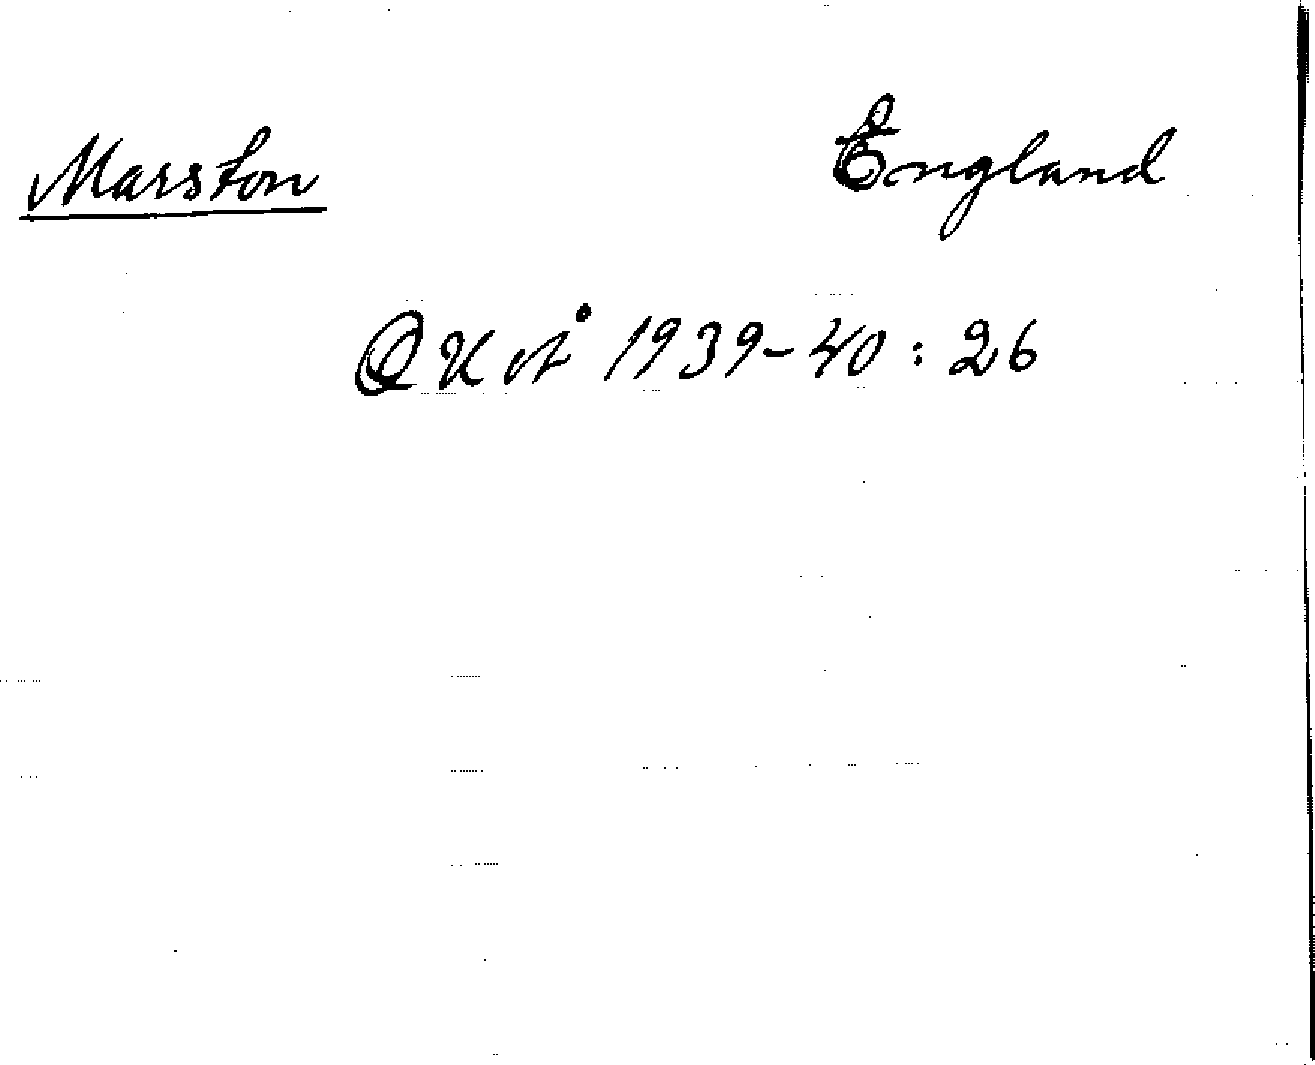 Marston England
OKÅ 1939-40: 26